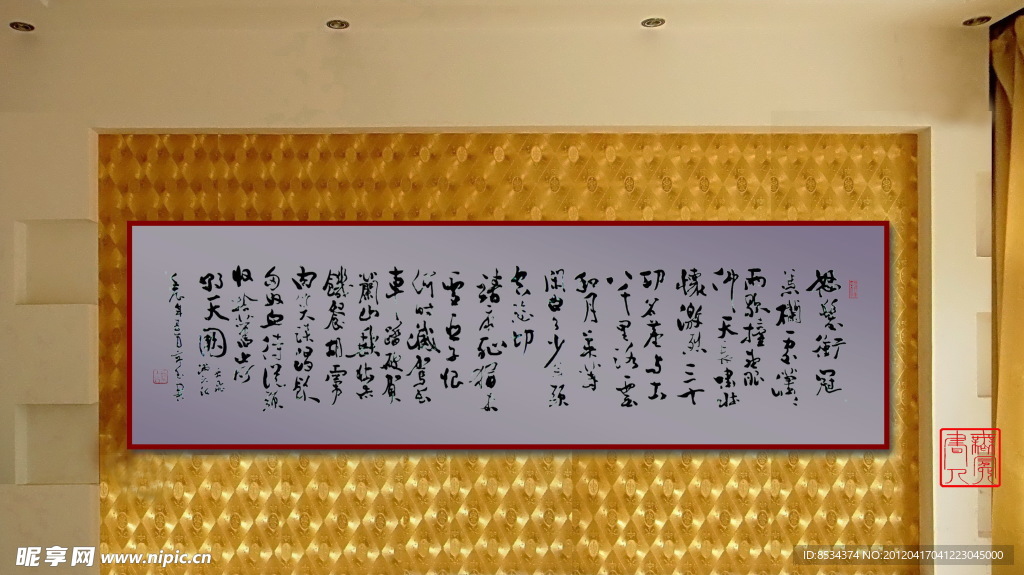 怒髮衝冠
憑欄處瀟瀟
雨歇擡望眼
仰天長嘯壯
懷激烈三十
功名塵與土
八千里路雲
和月莫等
閑白了少年頭
空悲切
靖康恥猶未
雪臣子恨
何時滅駕長
車踏破賀
蘭山缺壯志
飢餐胡虜
肉笑談渴飲
匈奴血待從頭
收拾舊山河
朝天闕
昵享网 www.nipic.cn
ID:8534374 NO:20120417041223045000